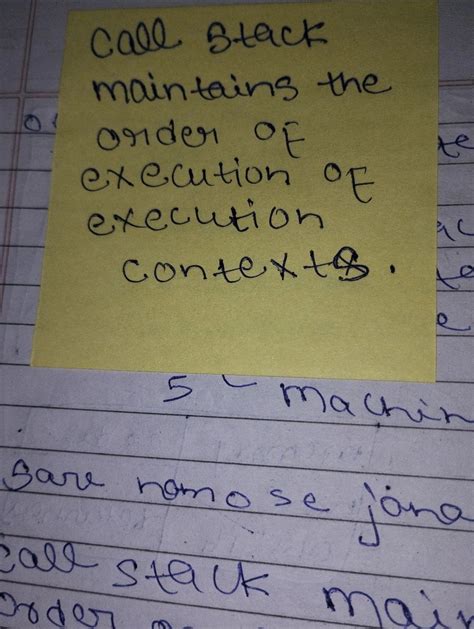 Call Stack
maintains the
order of
execution of
execution
contexts.
5 machin
Sare namo se jana
call stack main
order